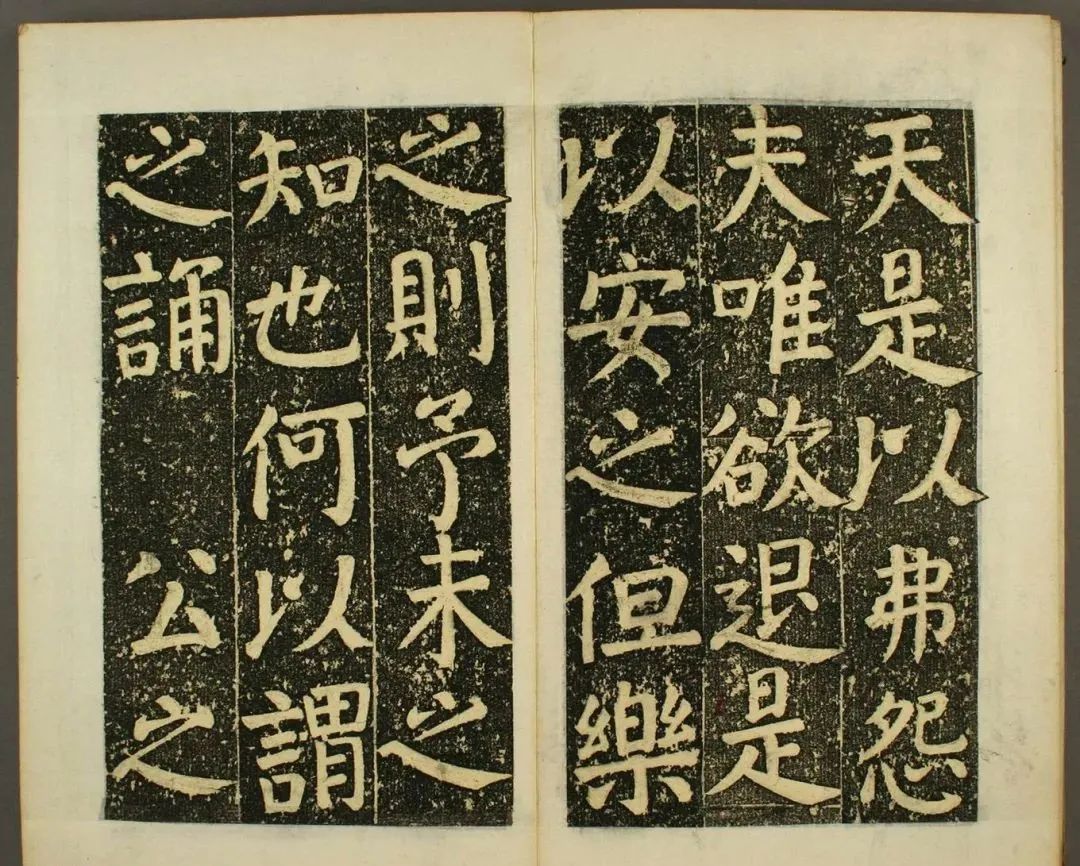 天是以弗怨
夫唯欲退是
以安之但樂
之則予未之
知也何以謂
之誦公之